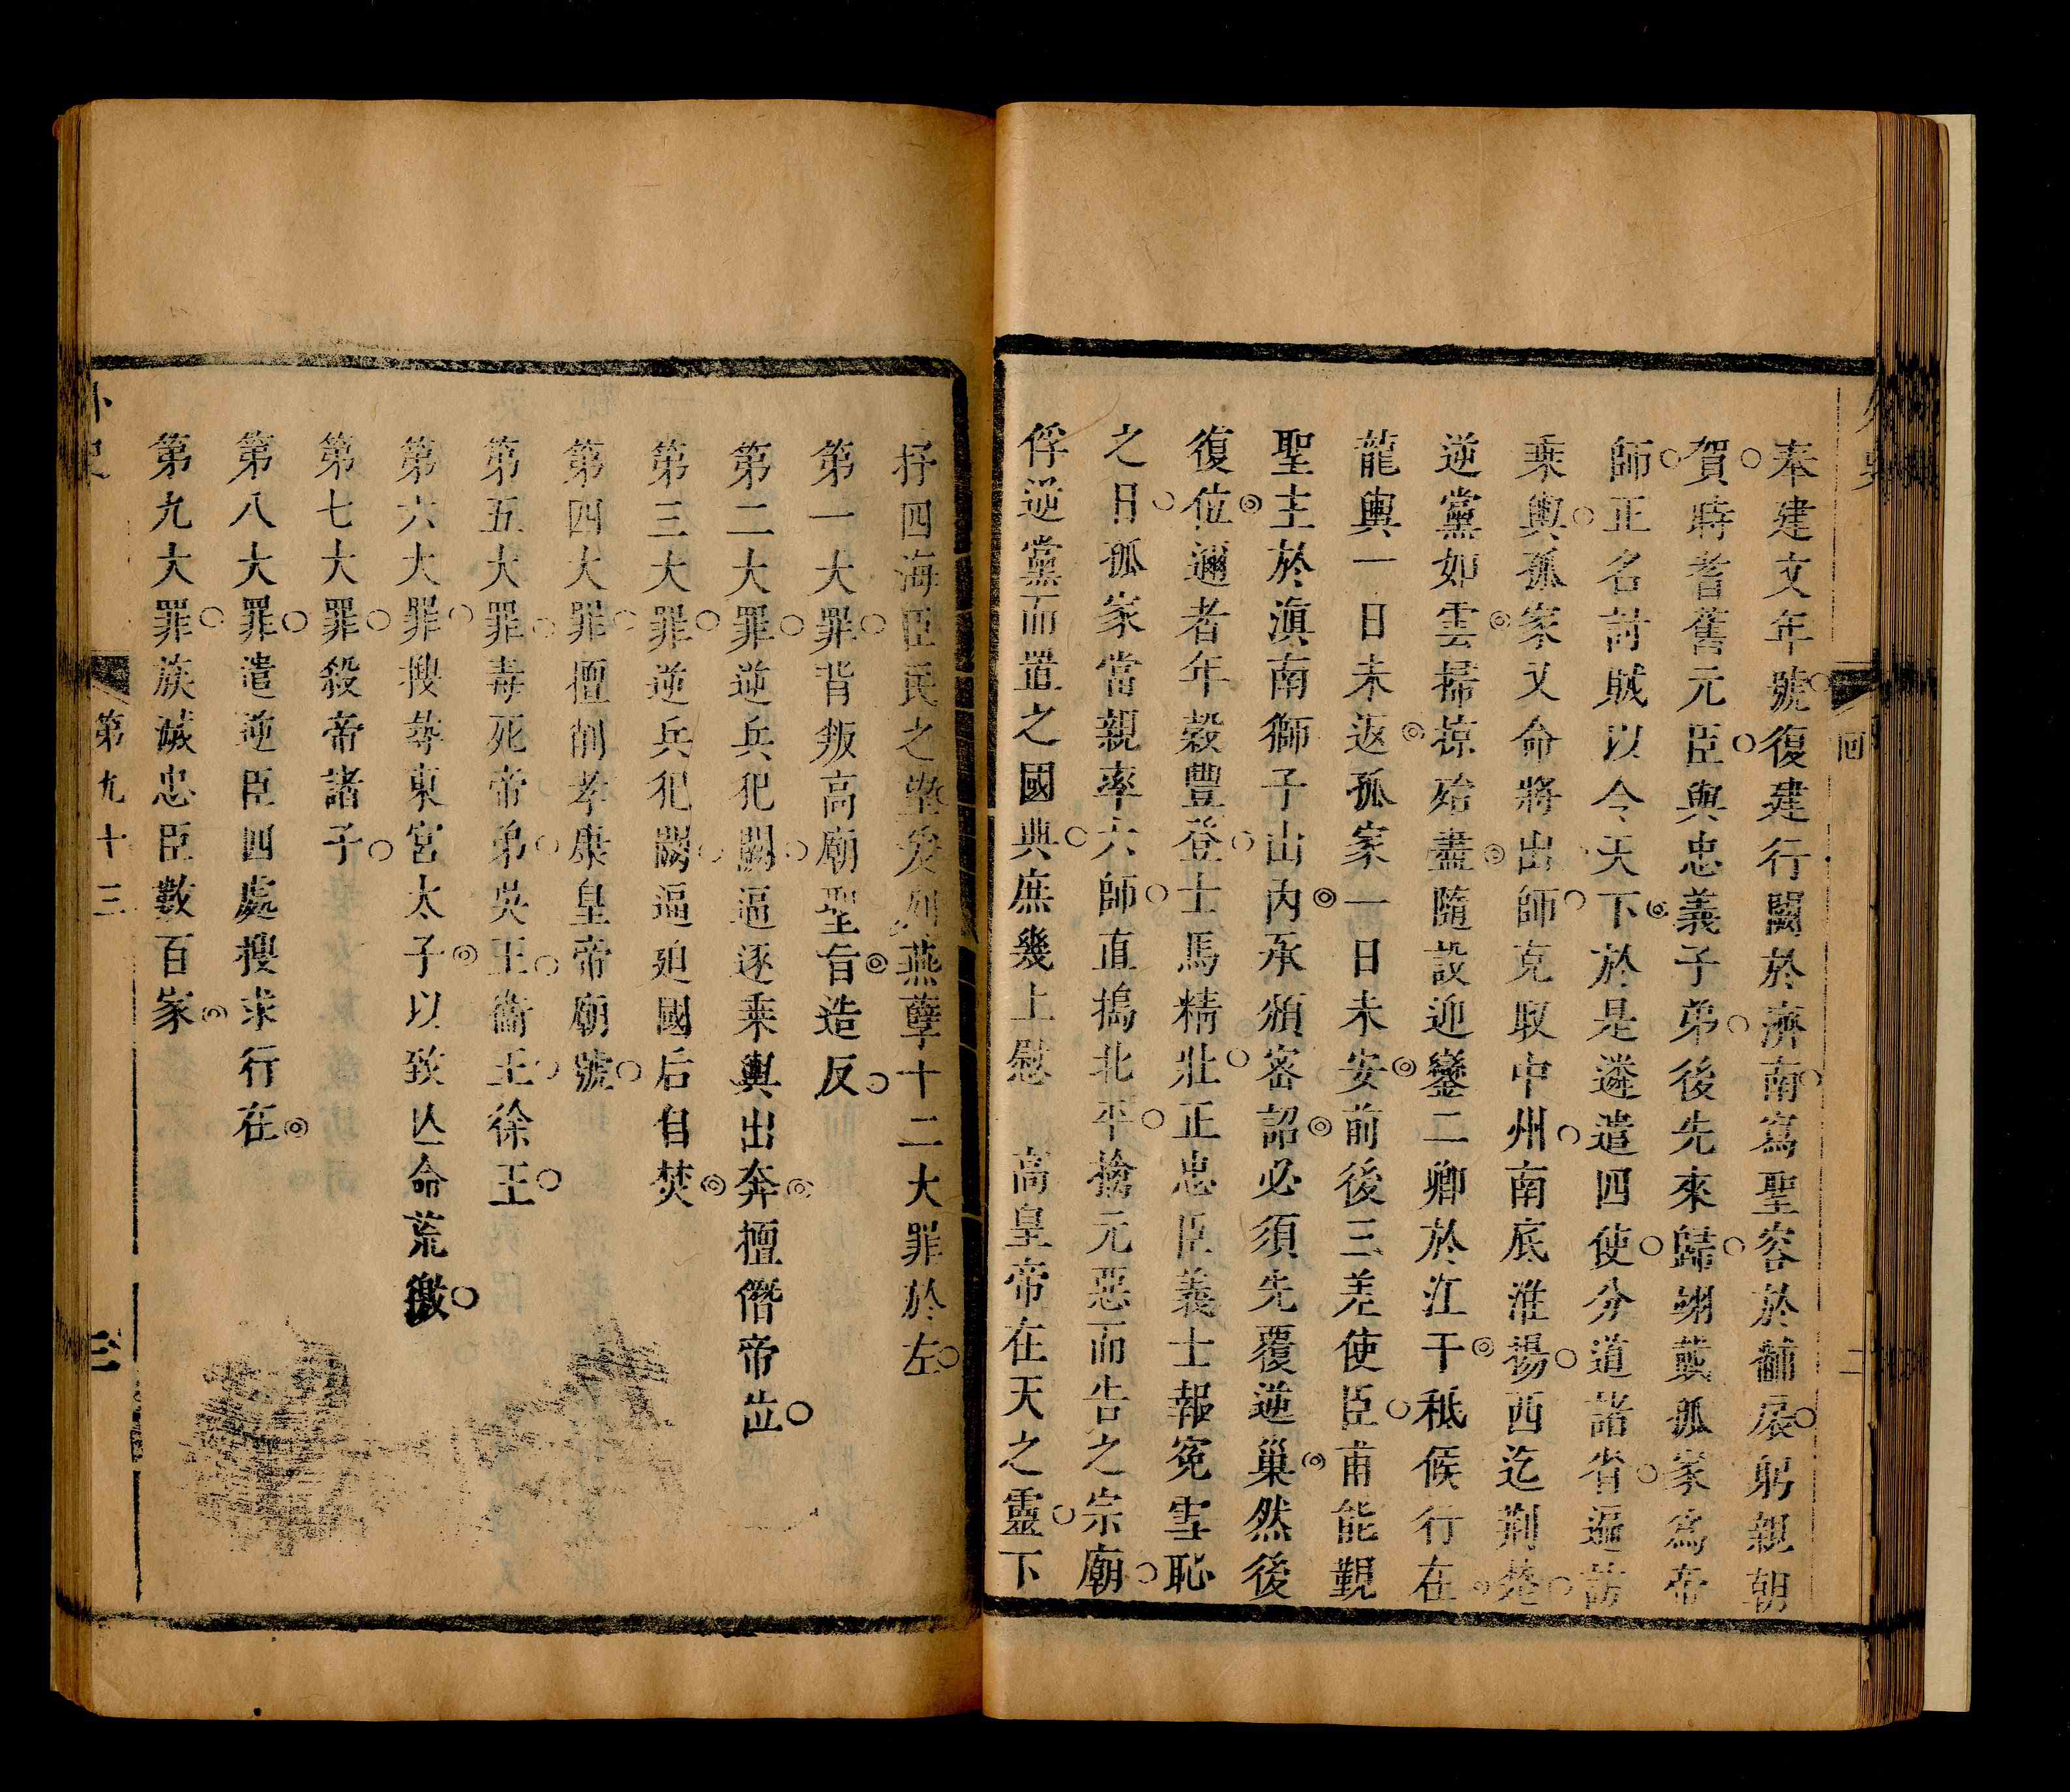 奉建文年號復建行闕於濟南寫聖容於黼扆躬親朝
賀時耆舊元臣與忠義子弟後先來歸翊戴孤家爲帝
師正名討賊以令天下於是遴遣四使分道諸省遍訪
乘輿孤家又命將出師克取中州南底淮揚西迄荆楚
逆黨如雲掃掠殆盡隨設迎鑾二卿於江干秪候行在
龍輿一日未返孤家一日未安前後三差使臣甫能覲
聖主於滇南獅子山内承頒密詔必須先覆逆巢然後
復位邇者年穀豐登士馬精壯正忠臣義士報寃雪恥
之日孤家當親率六師直搗北平擒元惡而告之宗廟
俘逆黨而置之國典庶幾上慰 高皇帝在天之靈下
抒四海臣民之望爰列燕孽十二大罪於左
第一大罪背叛高廟聖旨造反
第二大罪逆兵犯闕逼逐乘輿出奔擅僭帝位
第三大罪逆兵犯闕逼廹國后自焚
第四大罪擅削孝康皇帝廟號
第五大罪毒死帝弟吳王衛王徐王
第六大罪搜尋東宮太子以致亾命荒徼
第七大罪殺帝諸子
第八大罪遣逆臣四處搜求行在
第九大罪族滅忠臣數百家
外史
第九十三
三
回
二